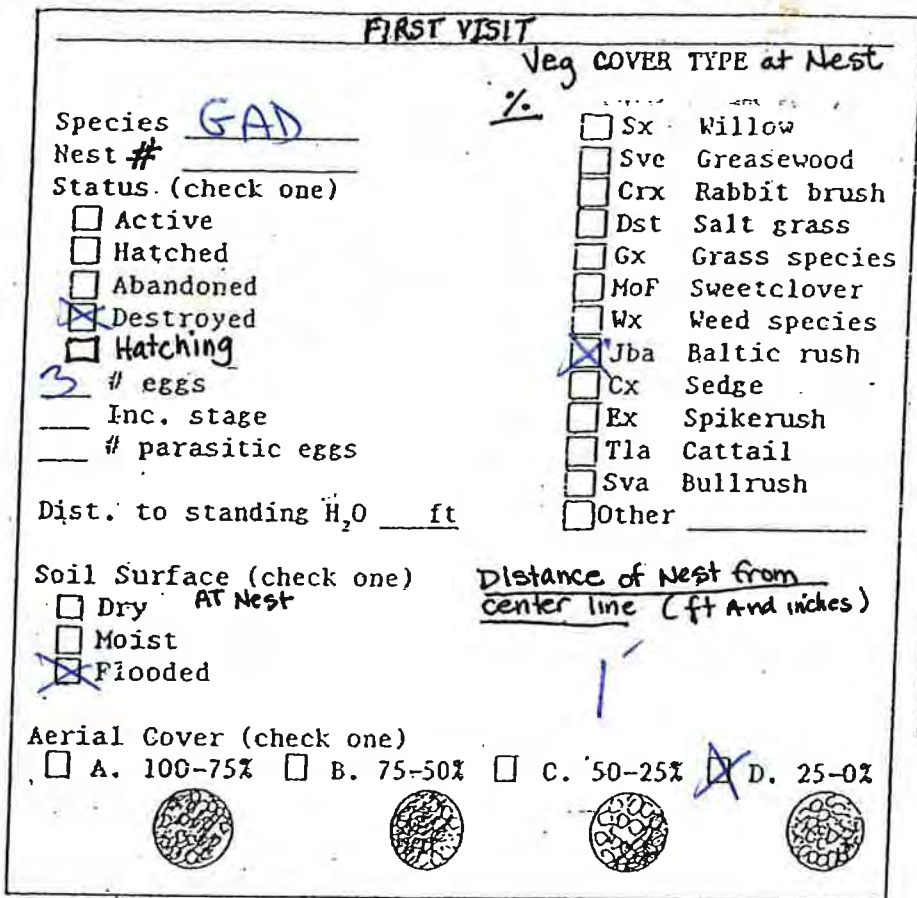 FIRST VISIT
Veg COVER TYPE at Nest
%
Species GAD
Nest #
Status (check one)
Active
Hatched
Abandoned
Destroyed
Hatching
3 # eggs
Inc. stage
# parasitic eggs
Dist. to standing H₂O ft
Sx Willow
Sve Greasewood
Crx Rabbit brush
Dst Salt grass
Gx Grass species
MoF Sweetclover
Wx Weed species
Jba Baltic rush
Cx Sedge
Ex Spikerush
Tla Cattail
Sva Bullrush
Other
Soil Surface (check one)
AT Nest
Dry
Moist
Flooded
Distance of Nest from
center line (ft And inches)
1'
Aerial Cover (check one)
A. 100-75% B. 75-50% C. 50-25% D. 25-0%